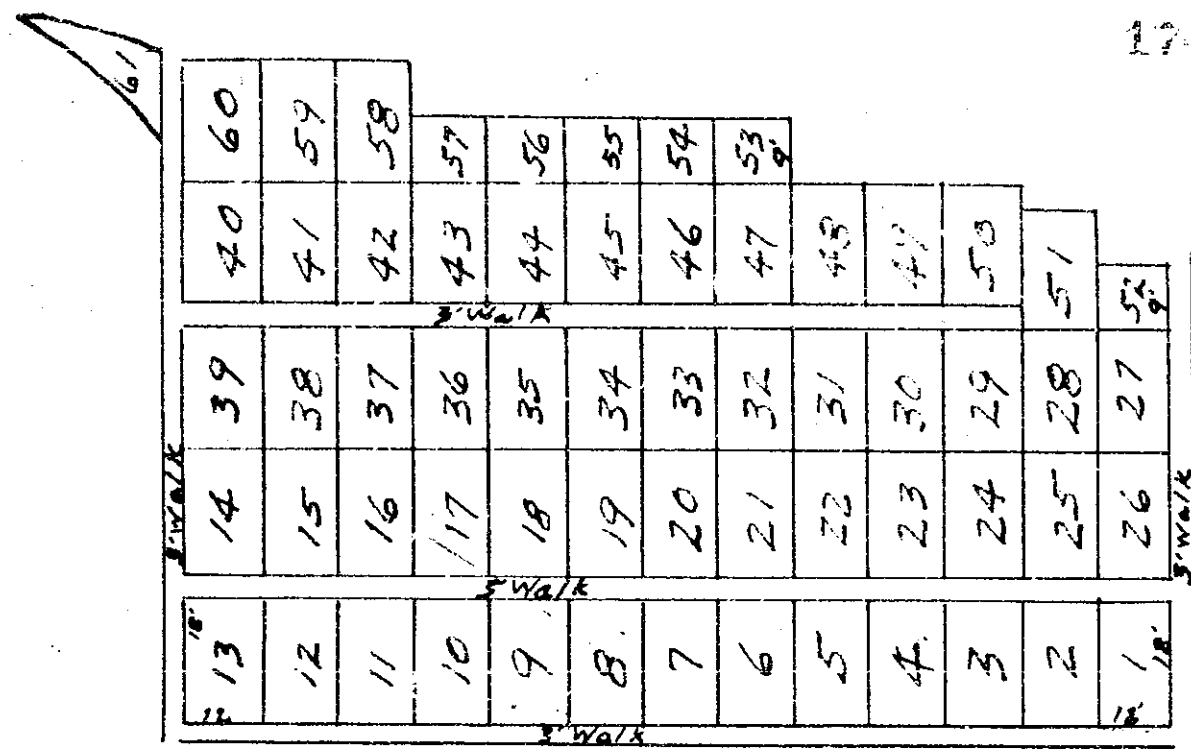 17
61
60 59 58 57 56 55 54 53 9'
40 41 42 43 44 45 46 47 48 49 50 51 52 9'
3' Walk
39 38 37 36 35 34 33 32 31 30 29 28 27
3' Walk
14 15 16 17 18 19 20 21 22 23 24 25 26
3' Walk
3' Walk
18'
13 12 11 10 9 8. 7 6 5 4. 3 2 1
18'
12
12'
3' Walk